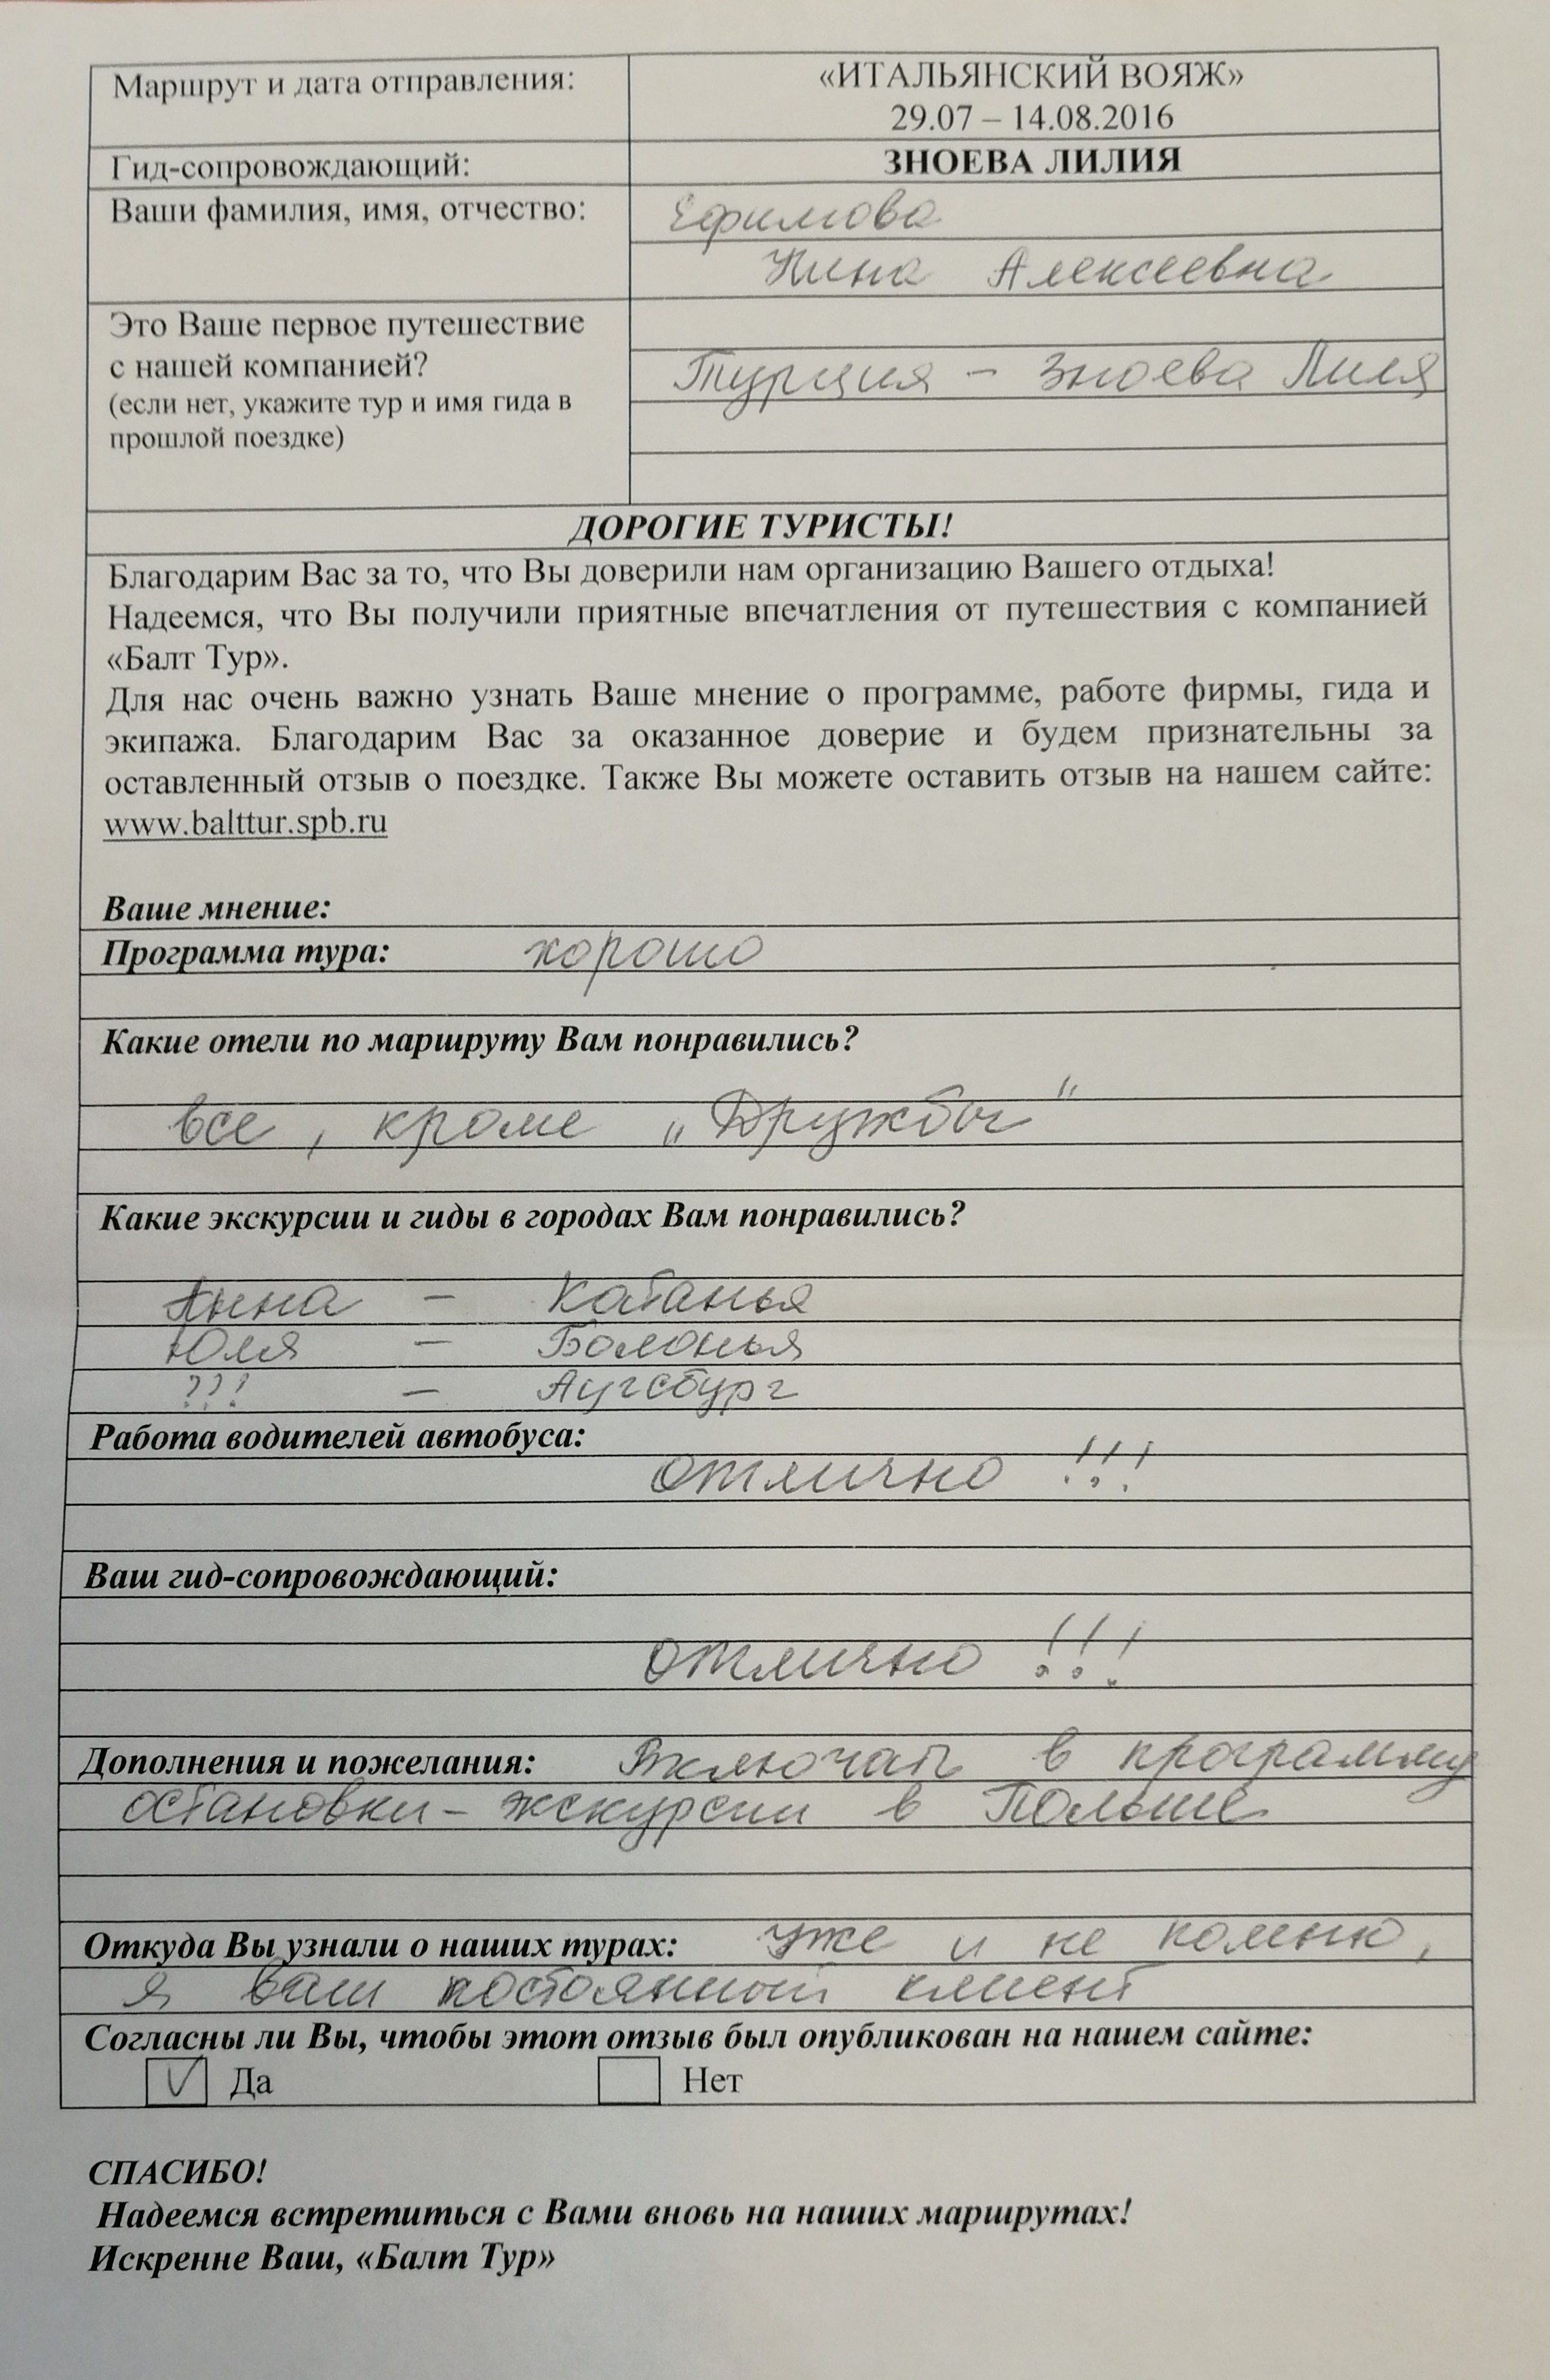 Маршрут и дата отправления:
«ИТАЛЬЯНСКИЙ ВОЯЖ»
29.07 – 14.08.2016
Гид-сопровождающий:
ЗНОЕВА ЛИЛИЯ
Ваши фамилия, имя, отчество:
Ефимова
Нина Алексеевна
Это Ваше первое путешествие
с нашей компанией?
(если нет, укажите тур и имя гида в
прошлой поездке)
Турция - Зноева Лиля
ДОРОГИЕ ТУРИСТЫ!
Благодарим Вас за то, что Вы доверили нам организацию Вашего отдыха!
Надеемся, что Вы получили приятные впечатления от путешествия с компанией
«Балт Тур».
Для нас очень важно узнать Ваше мнение о программе, работе фирмы, гида и
экипажа. Благодарим Вас за оказанное доверие и будем признательны за
оставленный отзыв о поездке. Также Вы можете оставить отзыв на нашем сайте:
www.balttur.spb.ru
Ваше мнение:
Программа тура: хорошо
Какие отели по маршруту Вам понравились?
все, кроме „Дружбы"
Какие экскурсии и гиды в городах Вам понравились?
Анна - Катанья
Юля - Болонья
??! - Аугсбург
Работа водителей автобуса:
отлично !!!
Ваш гид-сопровождающий:
отлично !!!
Дополнения и пожелания: Включать в программу
остановки-экскурсии в Польше
Откуда Вы узнали о наших турах: уже и не помню,
я ваш постоянный клиент
Согласны ли Вы, чтобы этот отзыв был опубликован на нашем сайте:
V Да Нет
СПАСИБО!
Надеемся встретиться с Вами вновь на наших маршрутах!
Искренне Ваш, «Балт Тур»